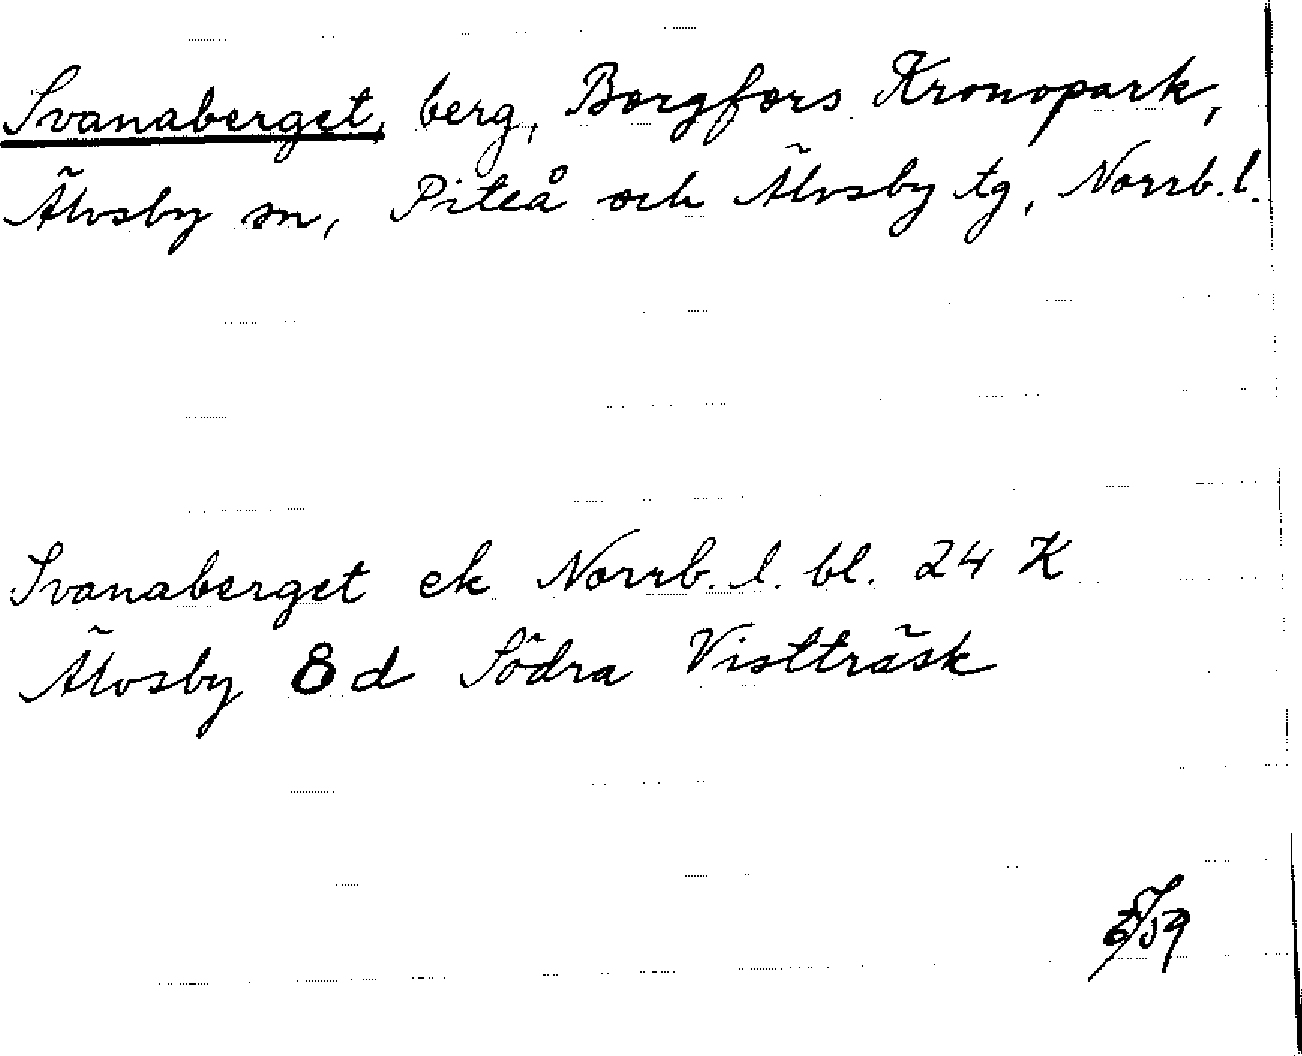 Svanaberget, berg, Borgfors Kronopark,
Älvsby sn, Piteå och Älvsby tg, Norrb. l.
Svanaberget ek Norrb. l. bl. 24 K
Älvsby 8 d Södra Vistträsk